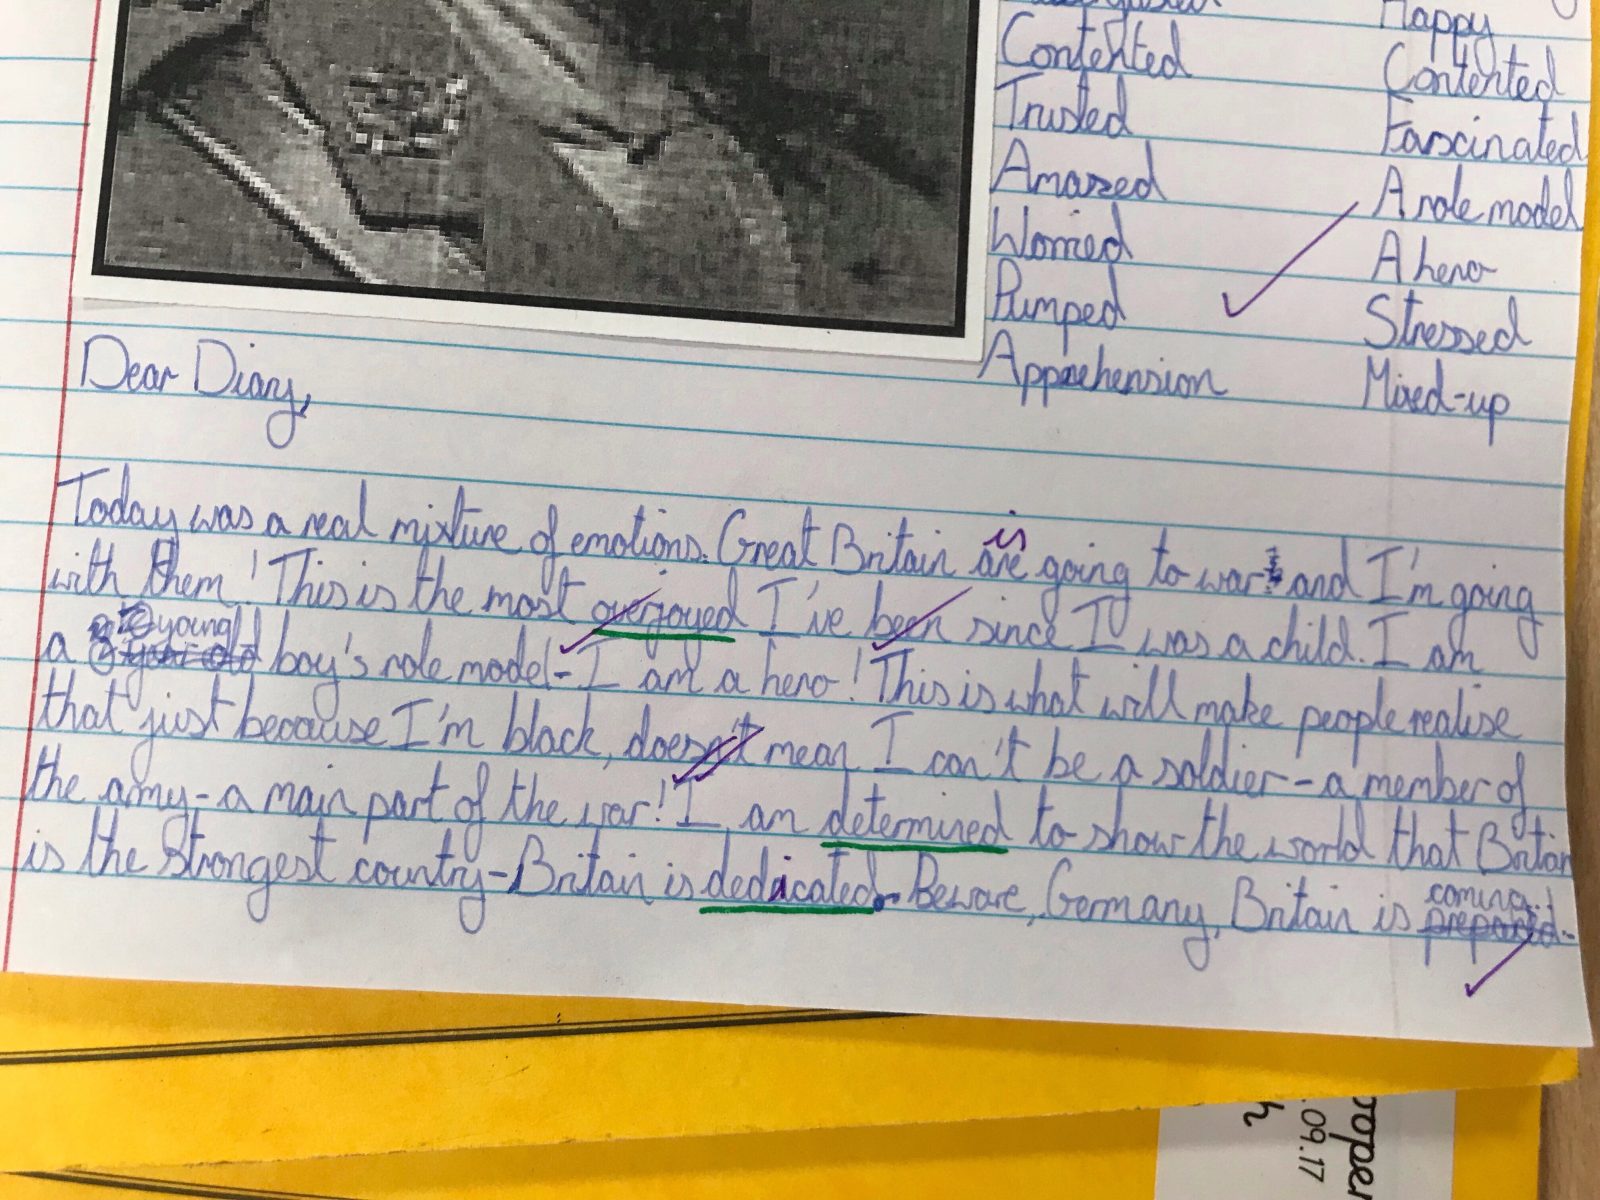 Happy
Contented Contented
Trusted Fascinated
Amazed A role model
Worried A hero
Pumped Stressed
Apprehension Mixed-up
Dear Diary,
Today was a real mixture of emotions. Great Britain are is going to war and I'm going
with them! This is the most overjoyed I've been since I was a child. I am
a young boy's role model - I am a hero! This is what will make people realise
that just because I'm black, doesn't mean I can't be a soldier - a member of
the army - a main part of the war! I am determined to show the world that Britain
is the strongest country - Britain is dedicated. Beware, Germany, Britain is prepared coming..!
.09.17